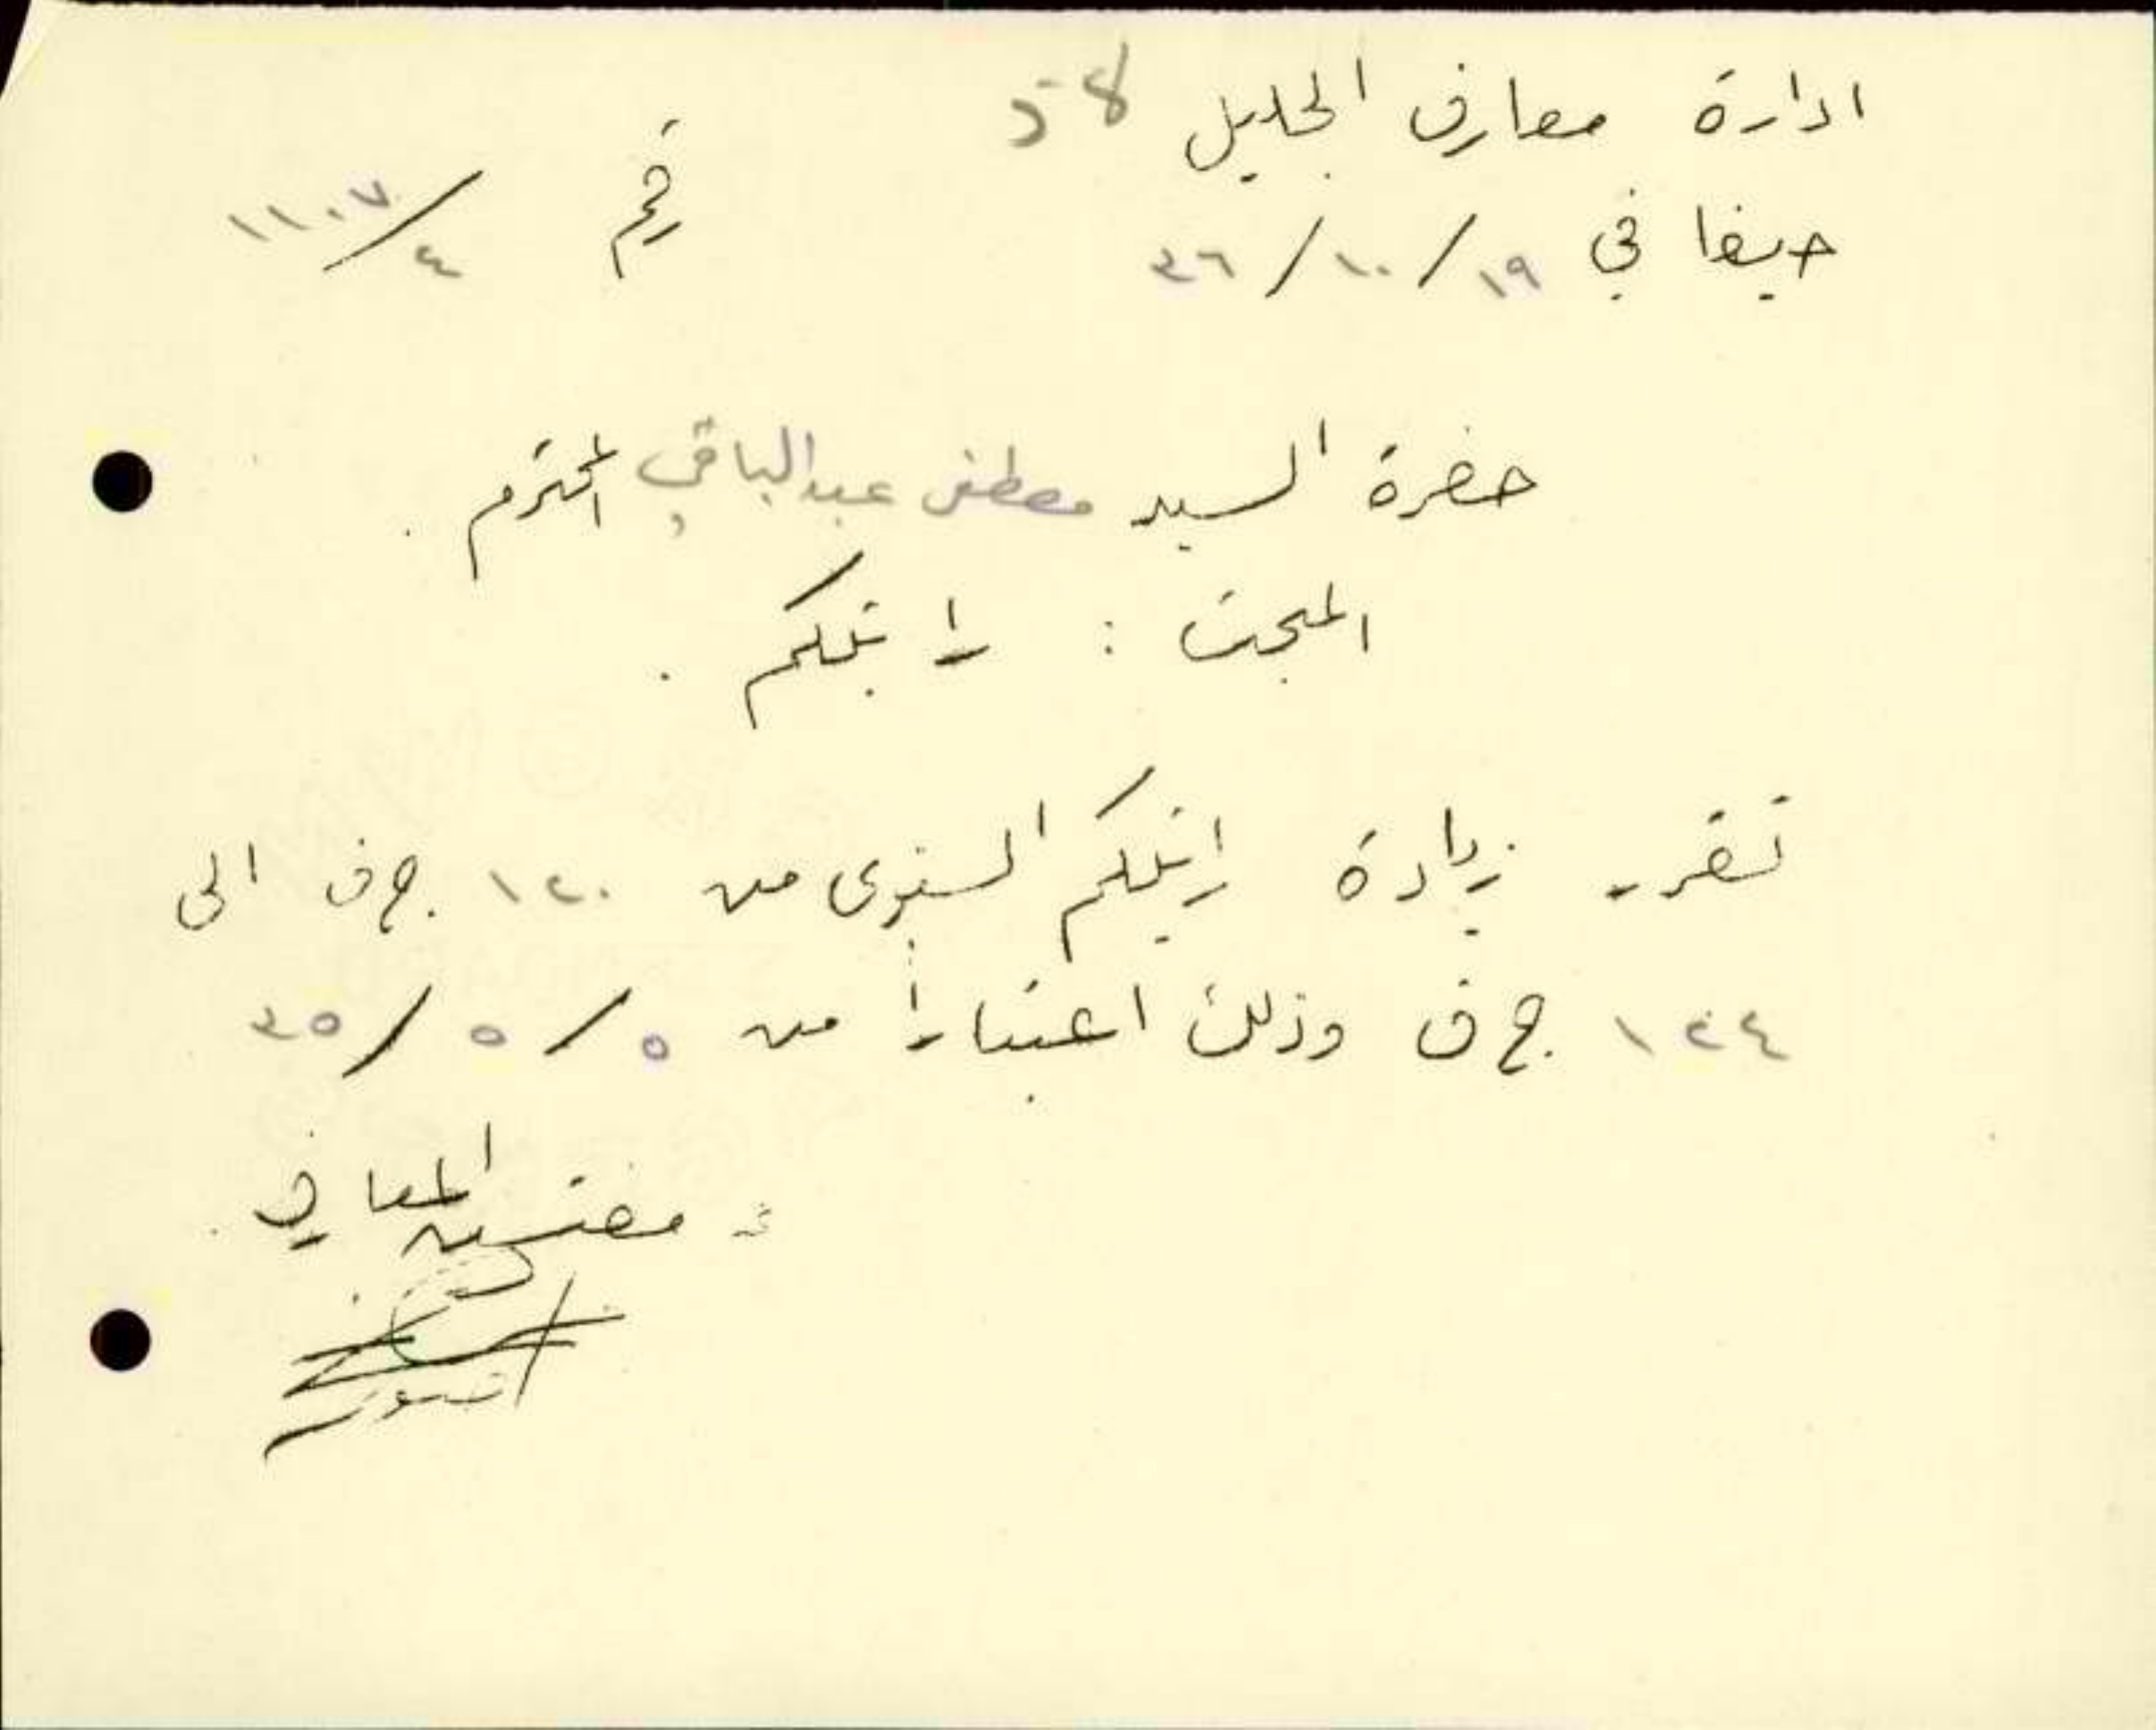 ادارة معارف الجليل 58
حيفا في ١٩/١٠/٣٦ رقم ١١٠٧/٤
حضرة السيد مصطفى عبدالباقي المحترم .
المبحث : راتبكم .
تقرر زيادة راتبكم السنوى من ١٢٠ ج ف الى
١٢٤ ج ف وذلك اعتباراً من ٥/٥/٣٥
مفتش المعارف